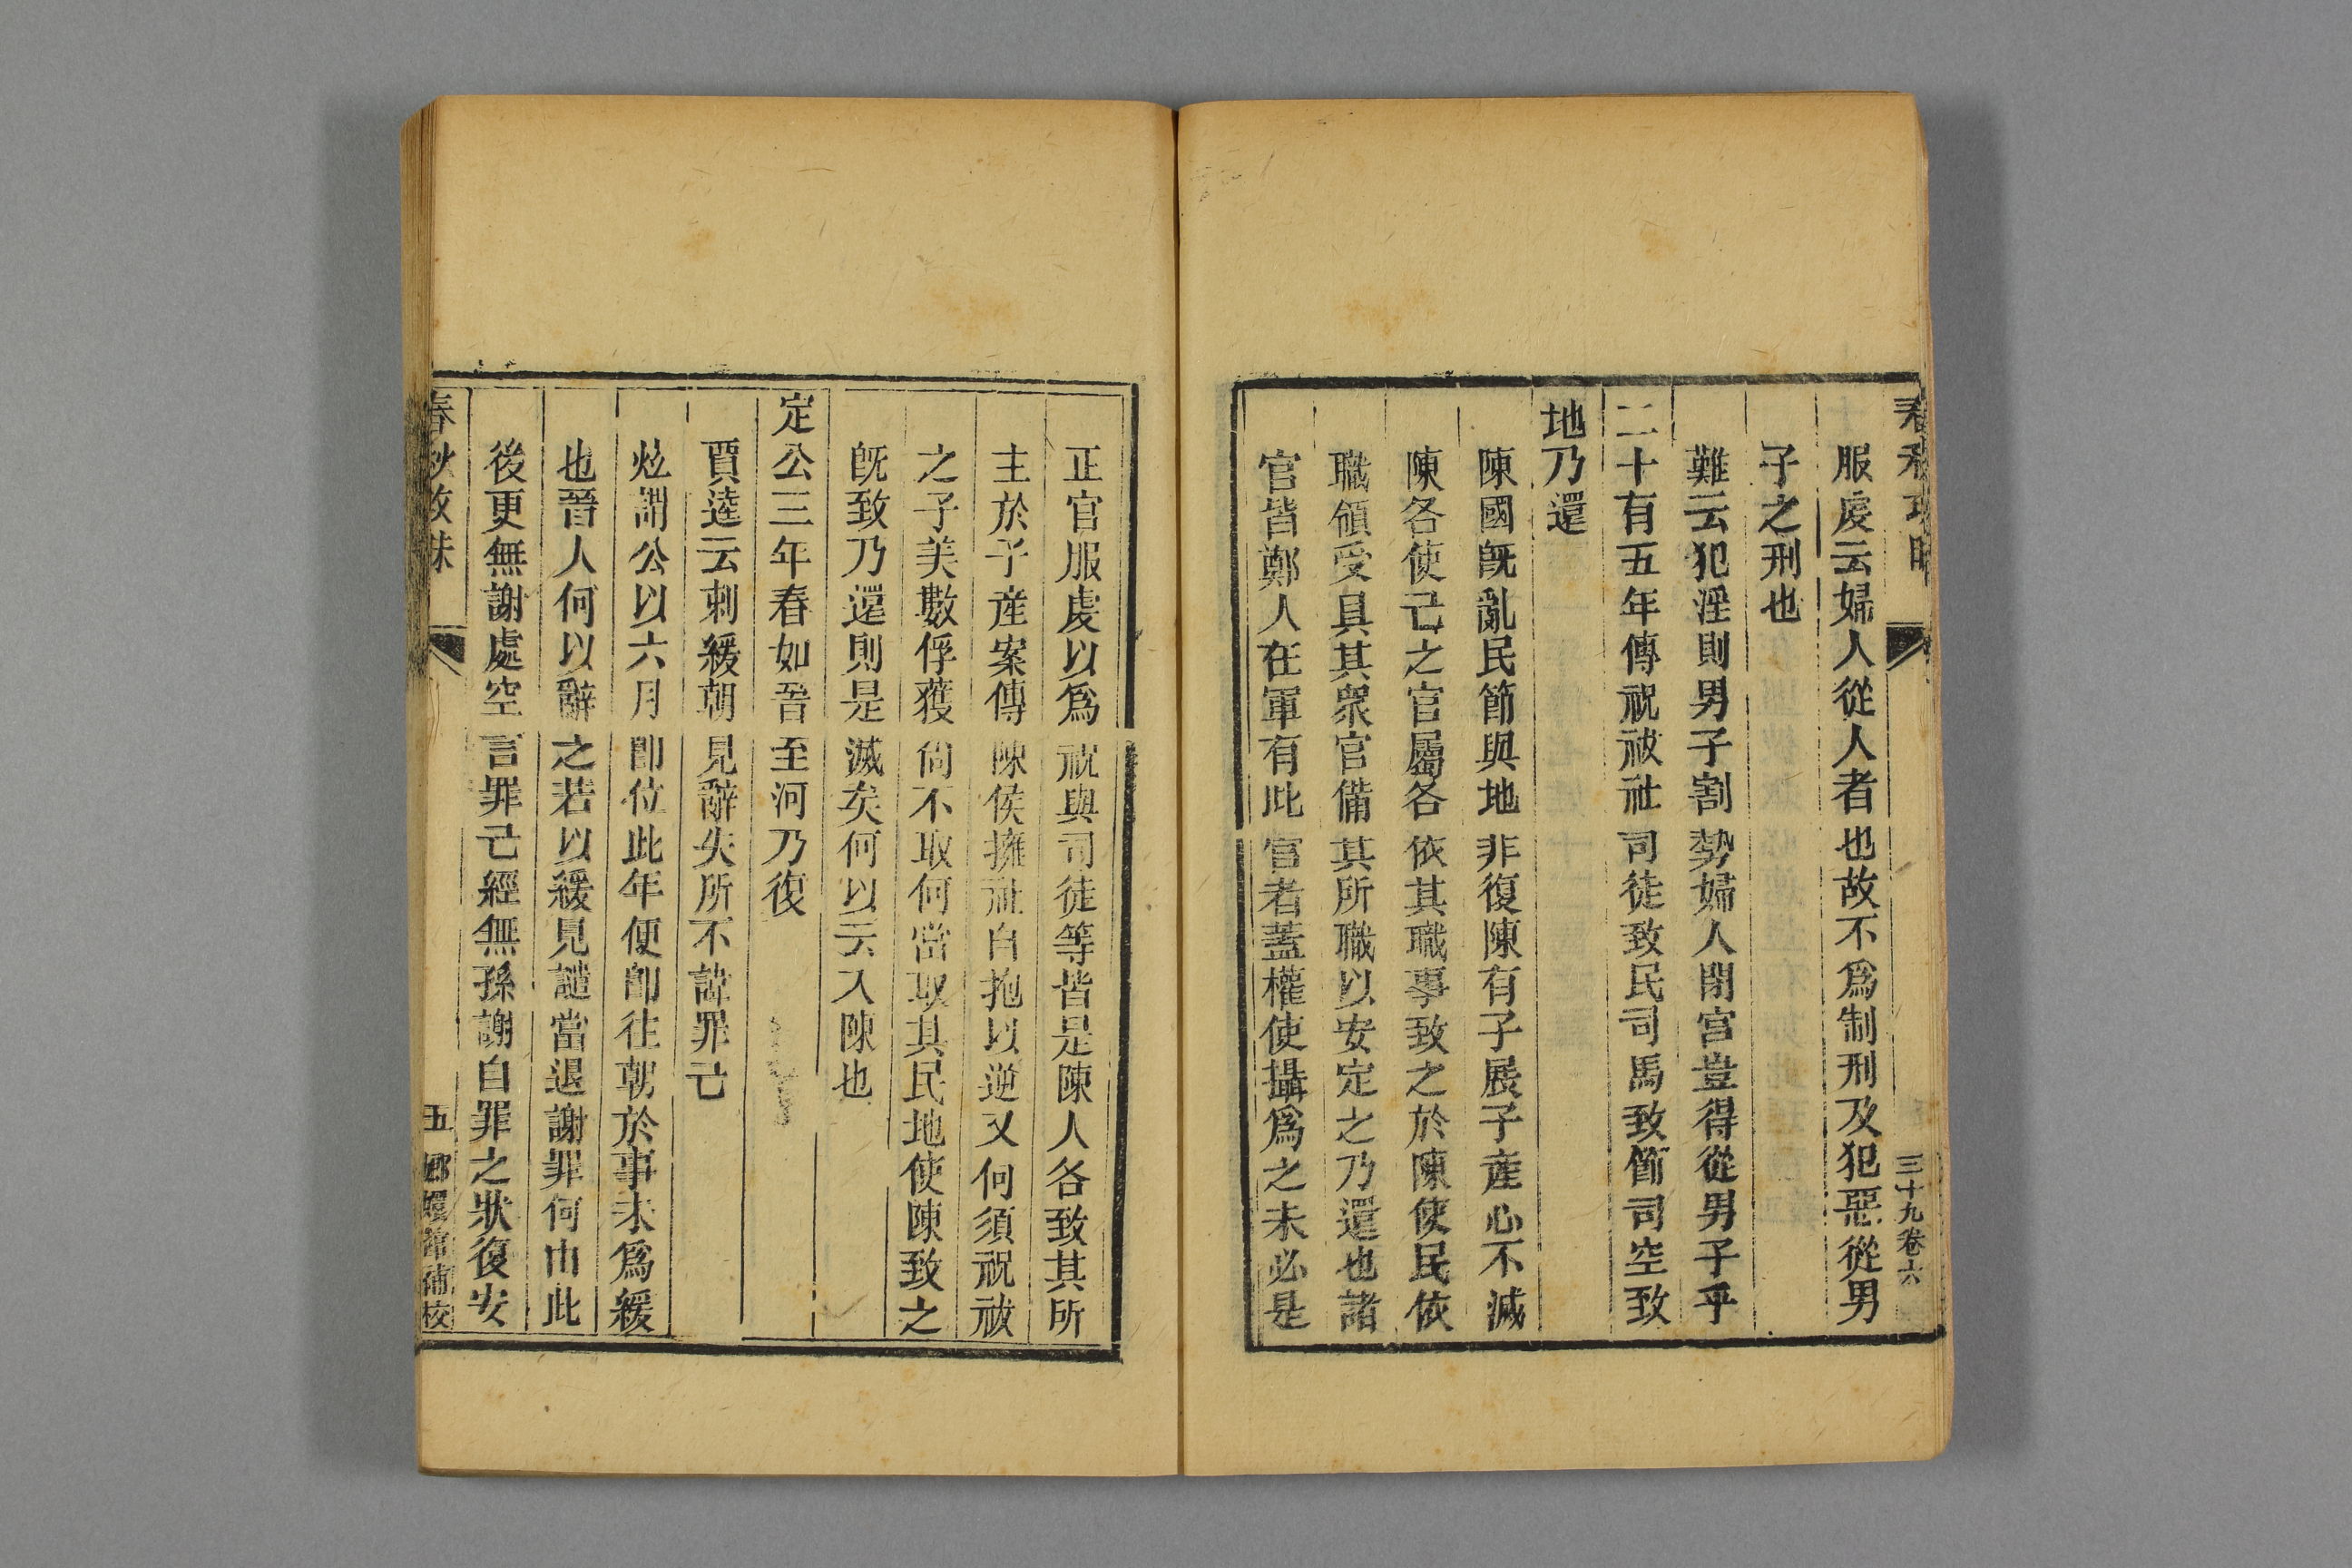 三十九卷六
服虔云婦人從人者也故不爲制刑及犯惡從男
子之刑也
難云犯淫則男子割勢婦人閉宮豈得從男子乎
二十有五年傳祝祓社司徒致民司馬致節司空致
地乃還
陳國旣亂民節與地非復陳有子展子產心不滅
陳各使己之官屬各依其職事致之於陳使民依
職領受具其衆官備其所職以安定之乃還也諸
官皆鄭人在軍有此官者蓋權使攝爲之未必是
正官服虔以爲祝與司徒等皆是陳人各致其所
主於子產案傳陳侯擁社自抱以逆又何須祝祓
之子美數俘獲尙不取何當取其民地使陳致之
旣致乃還則是滅矣何以云入陳也
定公三年春如晉至河乃復
賈逵云刺緩朝見辭失所不諱罪己
炫謂公以六月卽位此年便卽往朝於事未爲緩
也晉人何以辭之若以緩見譴當退謝罪何由此
後更無謝處空言罪己經無孫謝自罪之狀復安
春秋攻昧
五
鄉嬛館補校